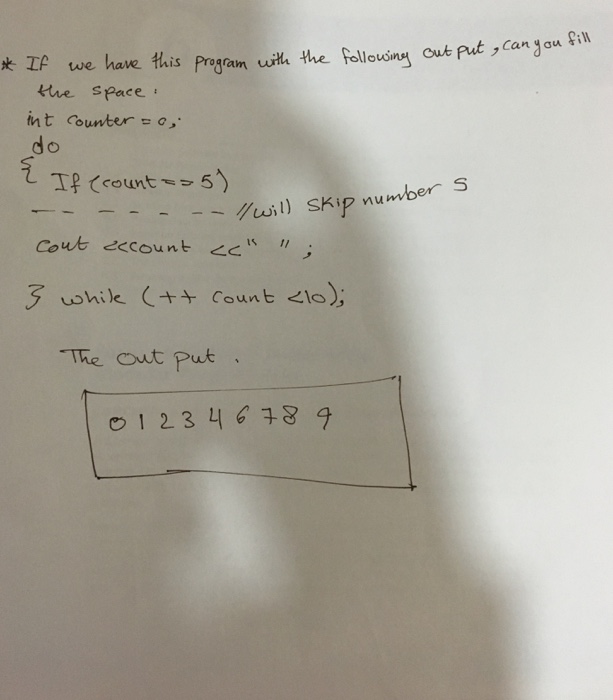 * If we have this program with the following out put, can you fill
the space:
int counter = 0;
do
{ If (count == 5)
-- - - - - -- //will skip number 5
cout <<count <<" " ;
} while (++ count <10);
The out put .
0 1 2 3 4 6 7 8 9